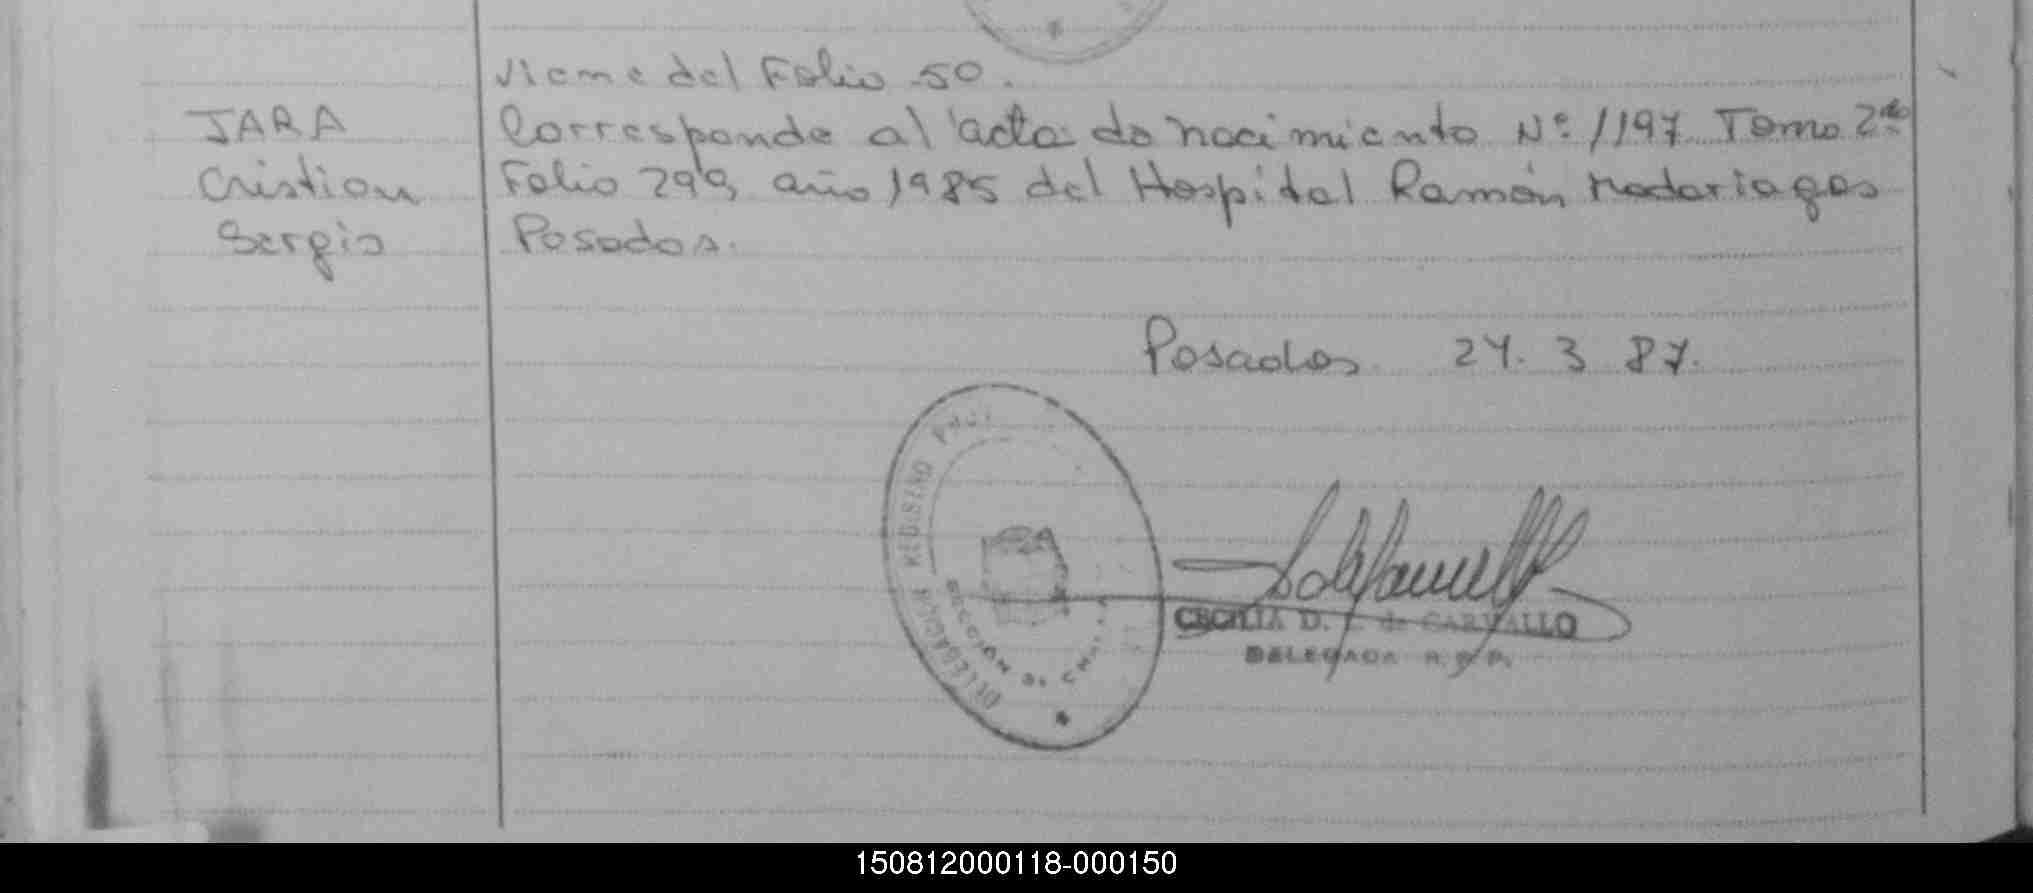 Viene del Folio 50.
JARA Corresponde al acta de nacimiento Nº 1197 Tomo 2do
Cristian Folio 299 año 1985 del Hospital Ramón Madariaga
Sergio Posadas.
Posadas 24. 3 87.
DELEGACION REGISTRO PROV
SECCION DE
CECILIA D. de CARVALLO
DELEGADA R. P.
150812000118-000150